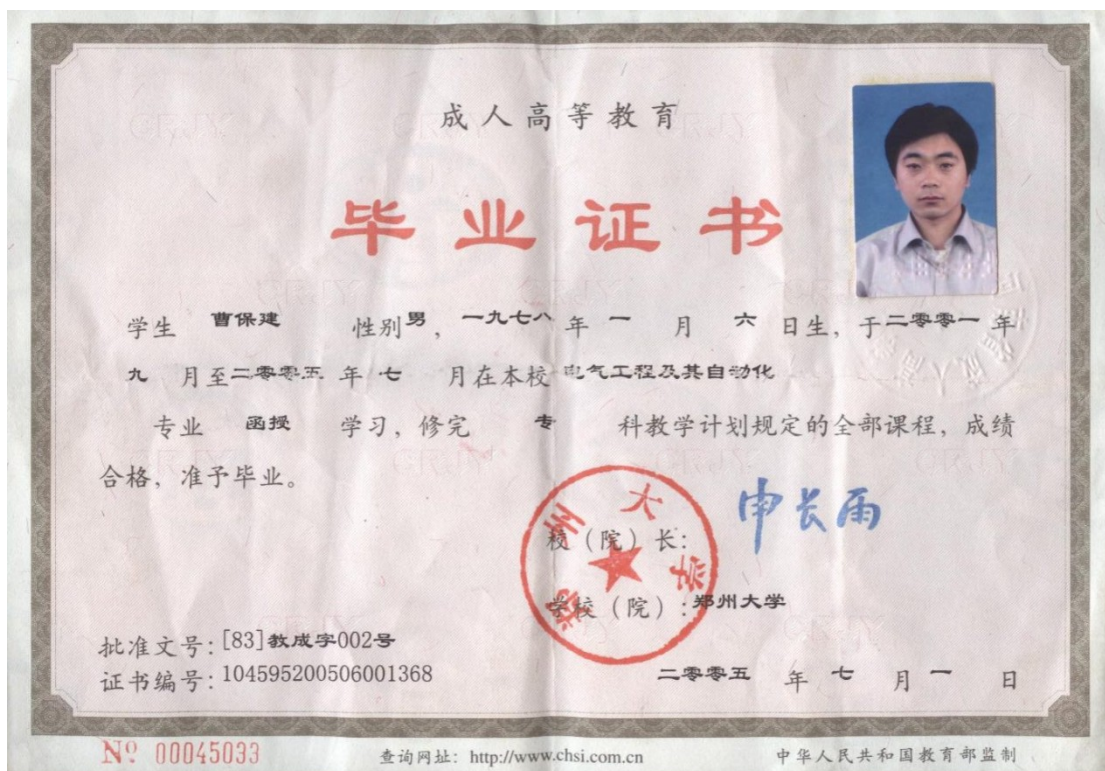 成人高等教育
毕业证书
学生 曹保建 性别男，一九七八 年 一 月 六 日生，于二零零一 年
九 月至二零零五 年 七 月在本校 电气工程及其自动化
专业 函授 学习，修完 专 科教学计划规定的全部课程，成绩
合格，准予毕业。
郑州大学
校（院）长：申长雨
学校（院）：郑州大学
批准文号：[83]教成字002号
证书编号：104595200506001368
二零零五 年 七 月 一 日
Nº 00045033
查询网址：http://www.chsi.com.cn
中华人民共和国教育部监制